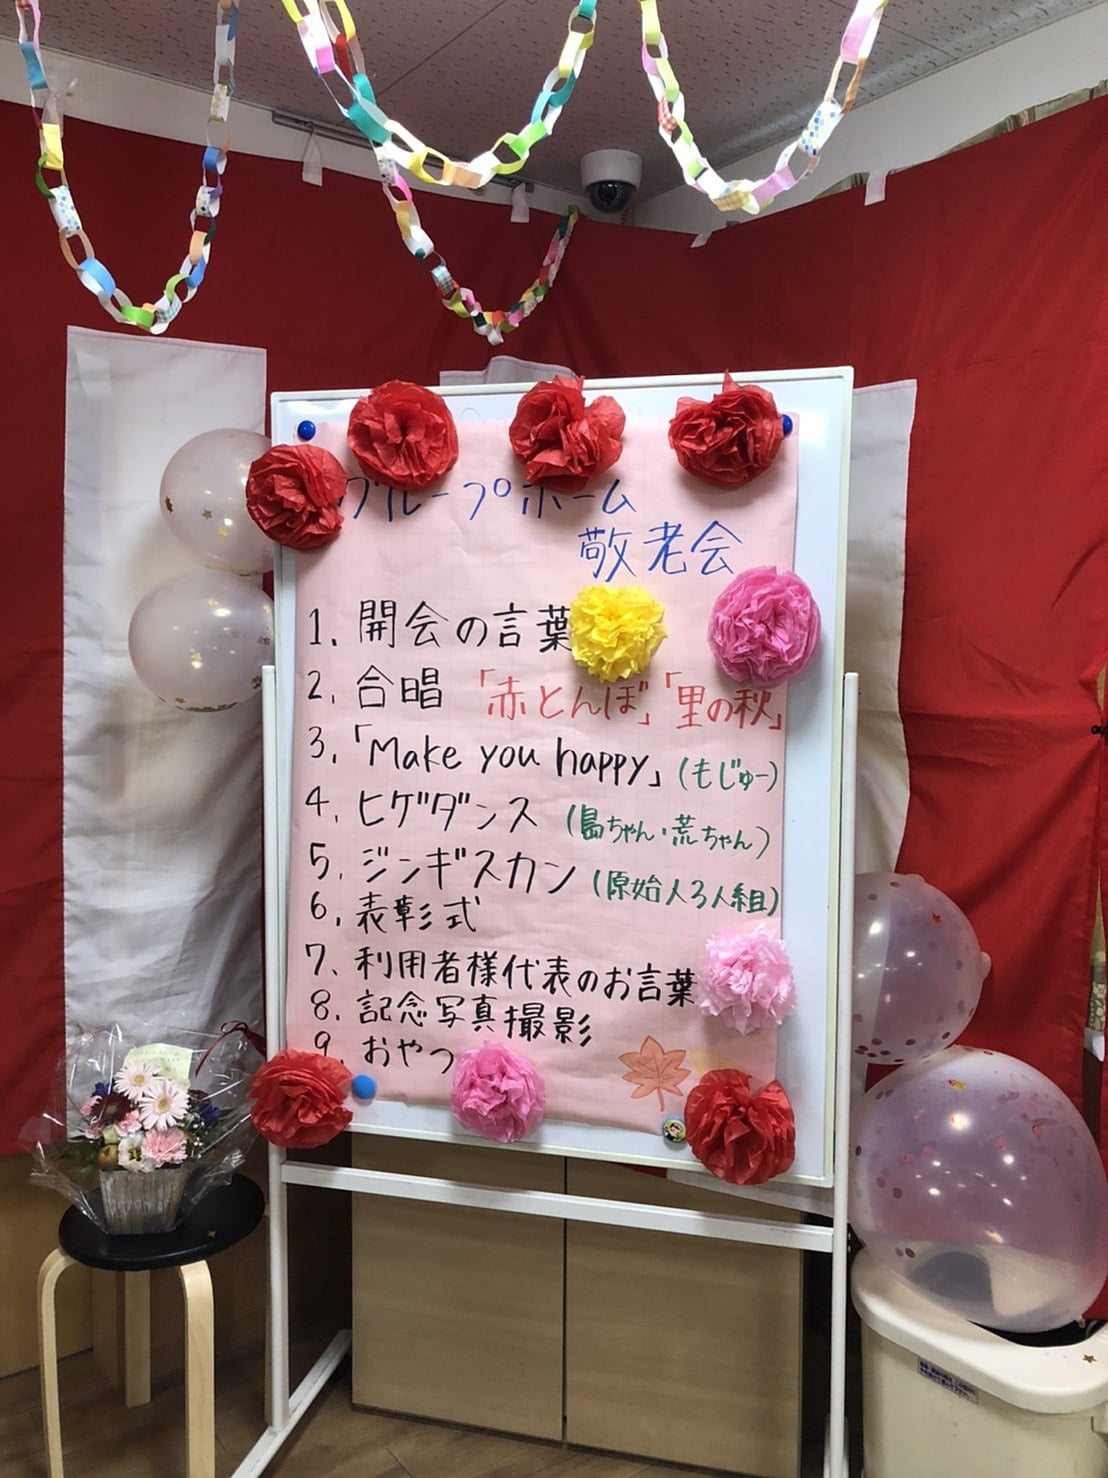 グループホーム
敬老会
1. 開会の言葉
2. 合唱 「赤とんぼ」「里の秋」
3. 「Make you happy」(もじゅー)
4. ヒゲダンス (島ちゃん・荒ちゃん)
5. ジンギスカン (原始人3人組)
6. 表彰式
7. 利用者様代表のお言葉
8. 記念写真撮影
9. おやつ